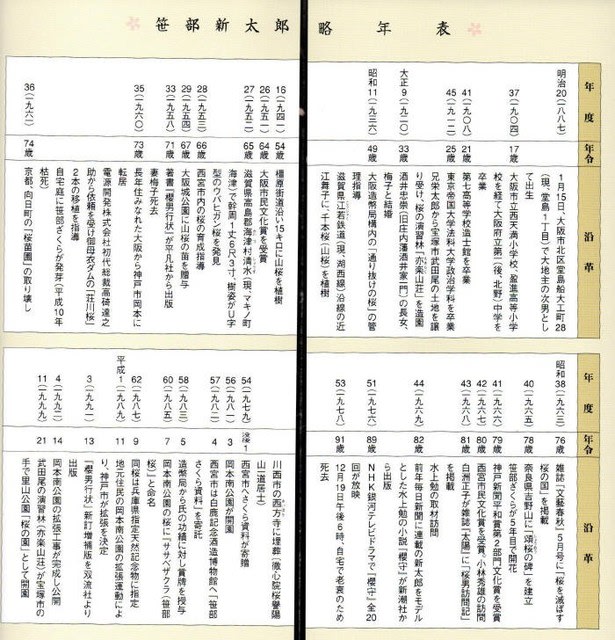 笹部新太郎 略年表
年度 年令 沿革
明治20（一八八七） 1月15日、大阪市北区堂島船大工町28
（現、堂島1丁目）で大地主の次男とし
て出生
37（一九〇四） 17歳 大阪市立西天満小学校、盈進高等小学
校を経て大阪府立第一（後、北野）中学を
卒業
41（一九〇八） 21歳 第七高等学校造士館を卒業
45（一九一二） 25歳 東京帝国大学法科大学政治学科を卒業
兄栄太郎から宝塚市武田尾の土地を譲
り受け、桜の演習林「亦楽山荘」を造園
大正9（一九二〇） 33歳 酒井忠崇（旧庄内藩酒井家一門）の長女、
梅子と結婚
昭和11（一九三六） 49歳 大阪造幣局構内の「通り抜けの桜」の管
理指導
滋賀県（江若鉄道（現、湖西線）沿線の近
江舞子に「千本桜」（山桜）を植樹
16（一九四一） 54歳 橿原街道沿い15キロに山桜を植樹
26（一九五一） 64歳 大阪市民文化賞を受賞
27（一九五二） 65歳 滋賀県高島郡海津村清水（現、マキノ町
海津）で幹周1丈6尺3寸、樹姿がU字
型のウバヒガン桜を発見
28（一九五三） 66歳 西宮市内の桜の育成指導
29（一九五四） 67歳 大阪城公園に山桜の苗を贈与
33（一九五八） 71歳 著書『櫻男行状』が平凡社から出版
妻梅子死去
35（一九六〇） 73歳 長年住みなれた大阪から神戸市岡本に
転居
電源開発株式会社初代総裁高碕達之
助から依頼を受け御母衣ダムの「荘川桜」
2本の移植を指導
36（一九六一） 74歳 自宅庭に笹部ざくらが発芽（平成10年
枯死）
京都、向日町の「桜苗圃」の取り壊し
年度 年令 沿革
昭和38（一九六三） 76歳 雑誌「文藝春秋」5月号に「桜を滅ぼす
桜の国」を掲載
40（一九六五） 78歳 奈良県吉野山に「頌桜の碑」を建立
笹部ざくらが5年目で開花
41（一九六六） 79歳 神戸新聞平和賞第2部門文化賞を受賞
42（一九六七） 80歳 西宮市民文化賞を受賞。小林秀雄の訪問
43（一九六八） 81歳 白洲正子が雑誌「太陽」に「桜男訪問記」
を掲載
水上勉の取材訪問
44（一九六九） 82歳 前年毎日新聞に連載の新太郎をモデル
とした水上勉の小説「櫻守」が新潮社か
ら出版
51（一九七六） 89歳 NHK銀河テレビドラマで「櫻守」全20
回が放映
53（一九七八） 91歳 12月19日午後6時、自宅で老衰のため
死去
川西市の西方寺に埋葬（徹心院桜譽陽
山一道居士）
54（一九七九） 没後1 西宮市へさくら資料が寄贈
56（一九八一） 3 岡本南公園が開園
57（一九八二） 4 西宮市は白鹿記念酒造博物館へ「笹部
さくら資料」を寄託
58（一九八三） 5 造幣局から氏の功績に対し賞牌を授与
60（一九八五） 7 岡本南公園の桜に「ササベザクラ（笹部
桜）」と命名
62（一九八七） 9 同桜は兵庫県指定天然記念木に指定
平成1（一九八九） 11 地元住民の岡本南公園の拡張運動によ
り、神戸市が拡張を決定
3（一九九一） 13 『櫻男行状』新訂増補版を双流社より
出版
4（一九九二） 14 岡本南公園の拡張工事が完成し公開
11（一九九九） 21 武田尾の演習林（亦楽山荘）が宝塚市の
手で里山公園「桜の園」として開園